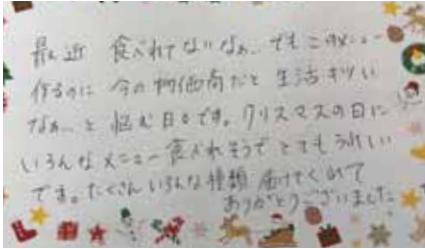 最近 食べれてないなぁ… でもこのメニュー
作るのに 今の物価高だと 生活キツい
なぁ… と 悩む日々です。クリスマスの日に
いろんなメニュー食べれそうで とてもうれしい
です。たくさんいろんな種類 届けてくれて
ありがとうございました